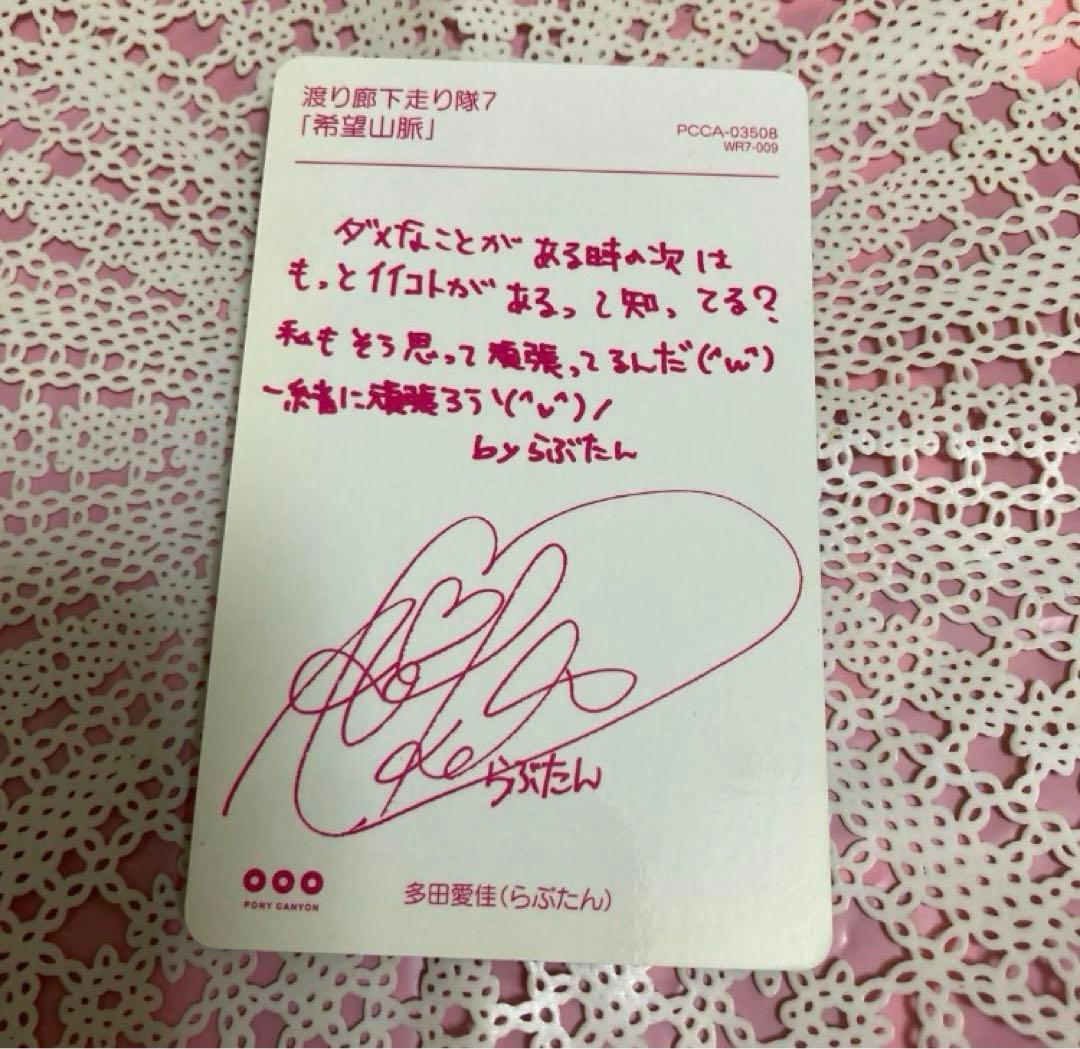 渡り廊下走り隊7
「希望山脈」
PCCA-03508
WR7-009
ダメなことがある時の次は
もっとイイコトがあるって知ってる?
私もそう思って頑張ってるんだ(^ω^)
一緒に頑張ろう\(^v^)/
byらぶたん
らぶたん
PONY CANYON
多田愛佳(らぶたん)